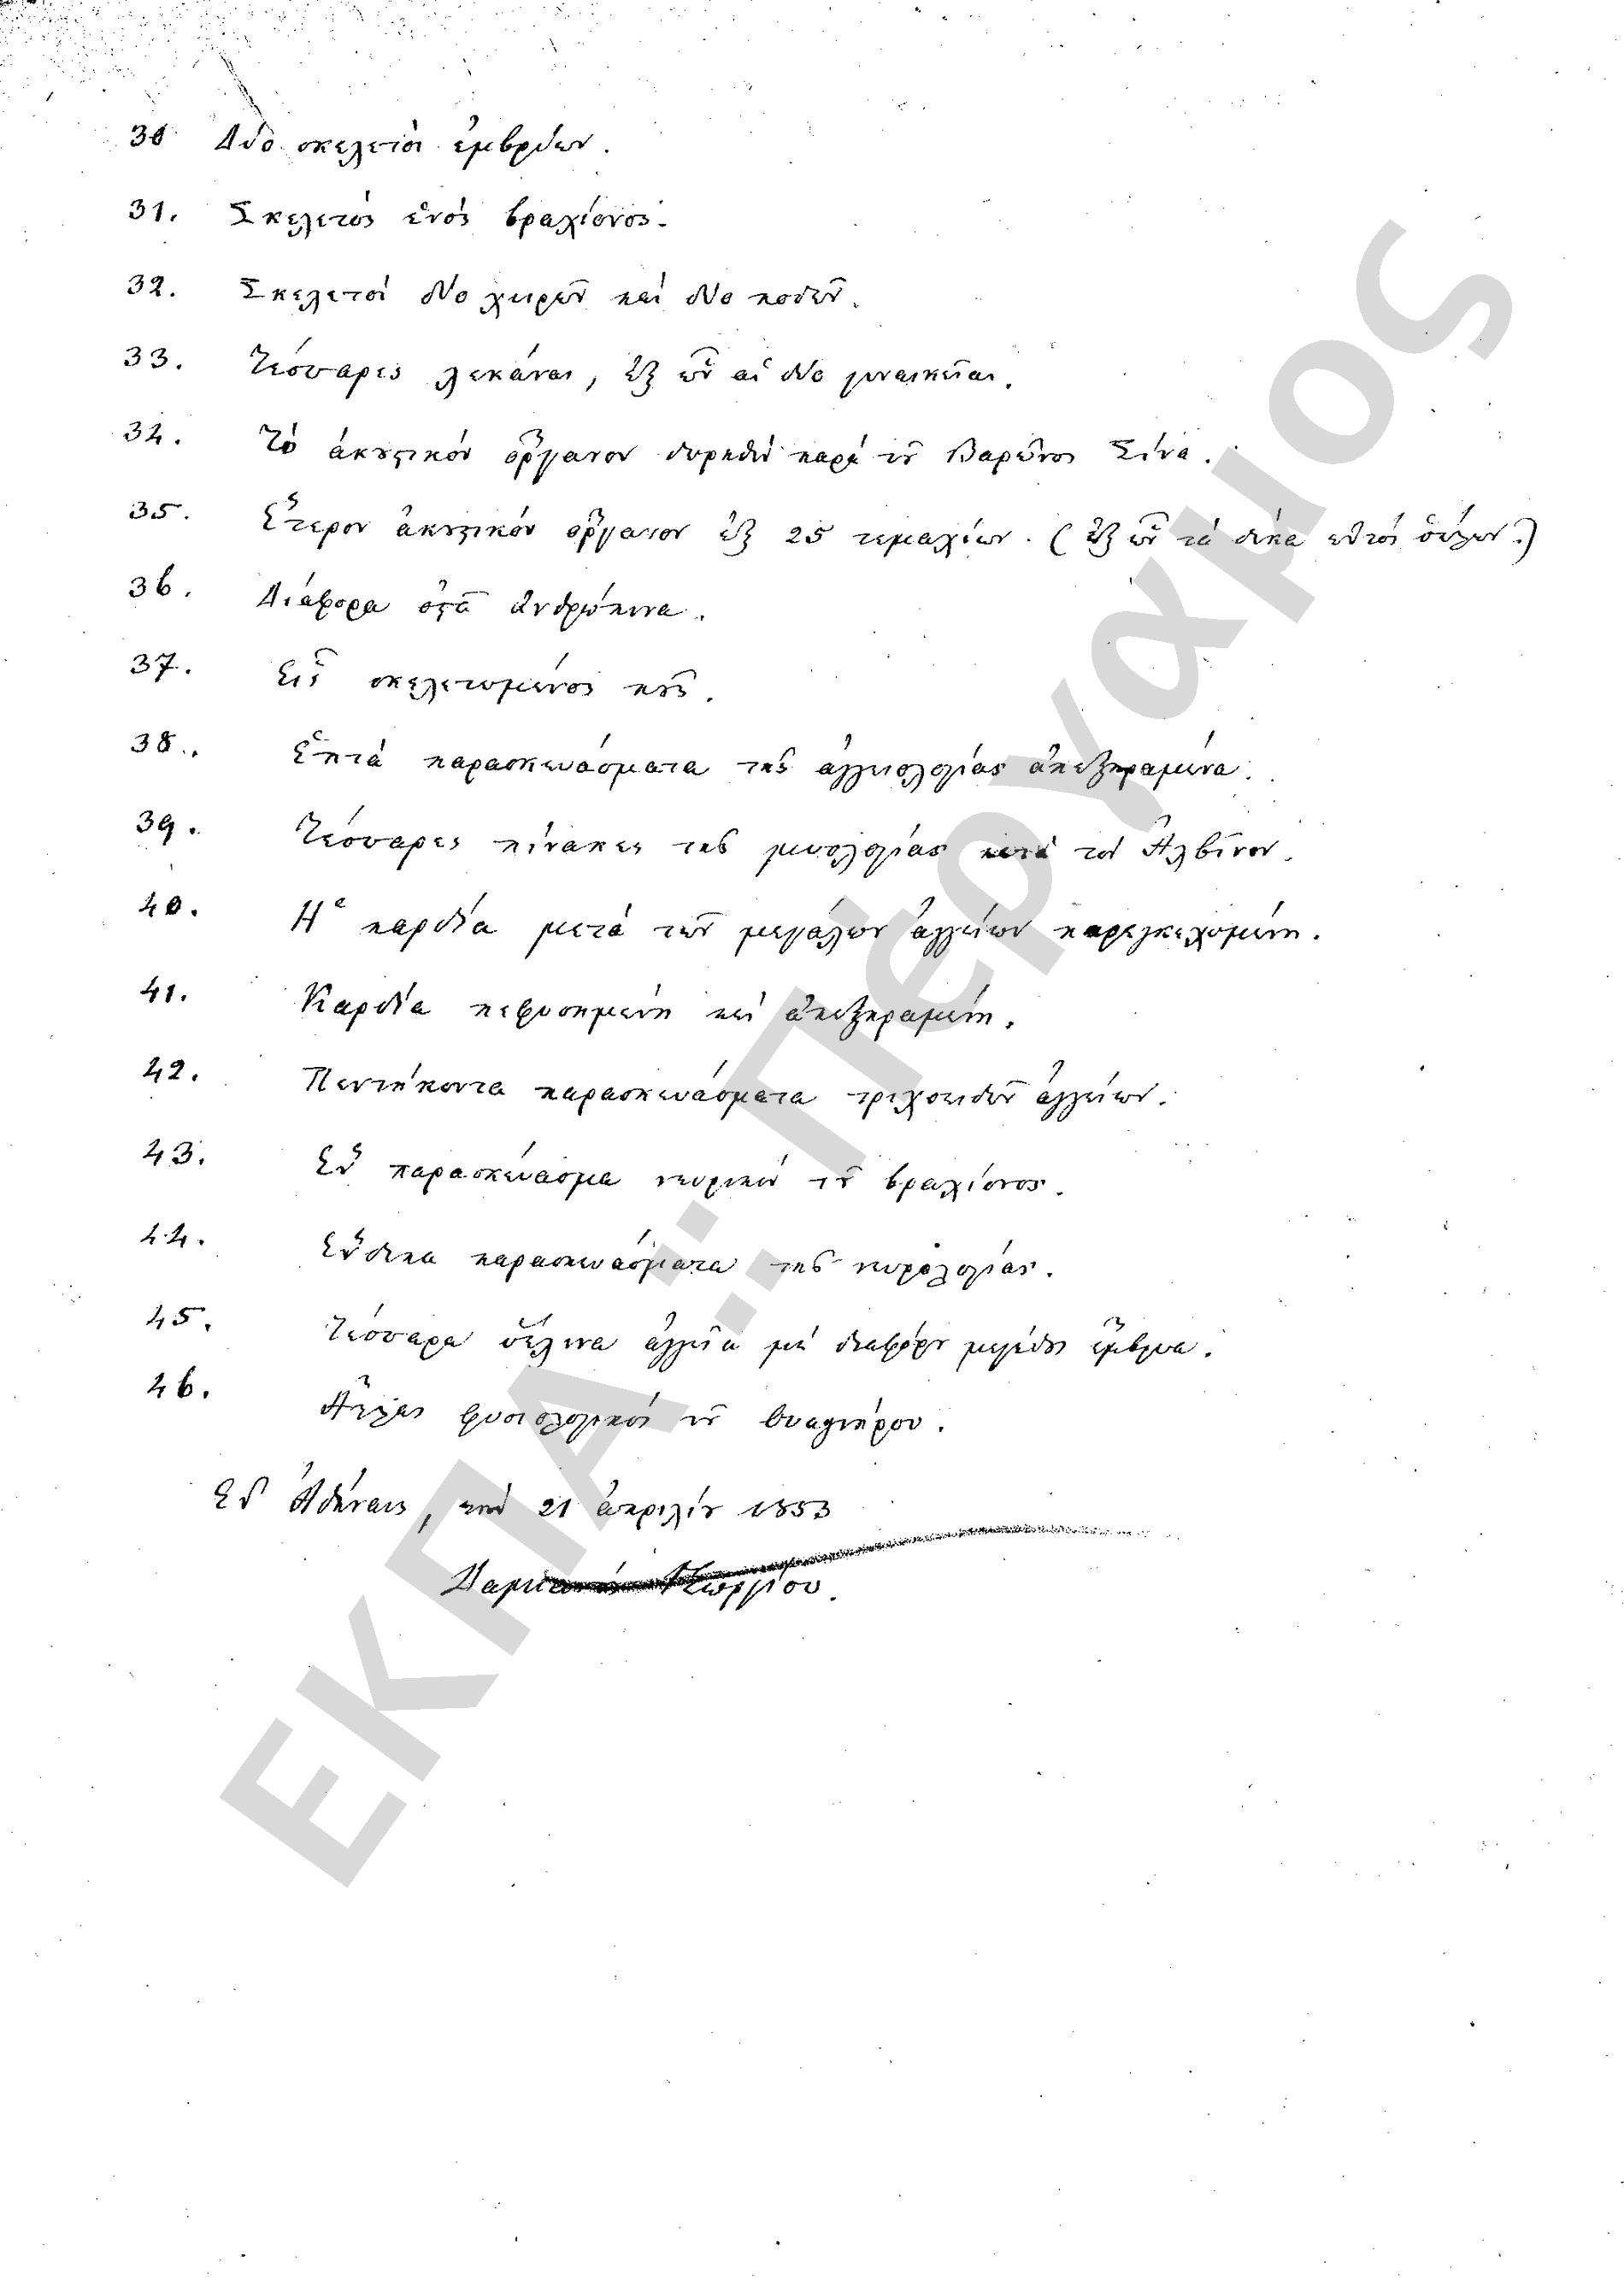 30 Δύο σκελετοὶ ἐμβρύων.
31. Σκελετὸς ἑνὸς βραχίονος.
32. Σκελετοὶ δύο χειρῶν καὶ δύο ποδῶν.
33. Τέσσαρες λεκάναι, ἐξ ὧν αἱ δύο γυναικεῖαι.
34. Τὸ ἀκουστικὸν ὄργανον δωρηθὲν παρὰ τοῦ Βαρῶνος Σίνα.
35. Ἕτερον ἀκουστικὸν ὄργανον ἐξ 25 τεμαχίων. (ἐξ ὧν τὰ δέκα
36. Διάφορα ὀστᾶ ἀνθρώπινα.
37. Εἷς σκελετωμένος ποῦς.
38. Ἑπτὰ παρασκευάσματα τῆς ἀγγειολογίας ἀπεξηραμένα.
39. Τέσσαρες πίνακες τῆς μυολογίας κατὰ τὸν Ἀλβῖνον.
40. Ἡ καρδία μετὰ τῶν μεγάλων ἀγγείων παρεγκεχυμένη.
41. Καρδία πεφυσημένη καὶ ἀπεξηραμένη.
42. Πεντήκοντα παρασκευάσματα τριχοειδῶν ἀγγείων.
43. Ἓν παρασκεύασμα νευρικὸν τοῦ βραχίονος.
44. Ἕνδεκα παρασκευάσματα τῆς νευρολογίας.
45. Τέσσαρα ὑέλινα ἀγγεῖα μὲ διαφόρου μεγέθους ἔμβρυα.
46. Ἄτλας φυσιολογικὸς τοῦ Βυαγνέρου.
Ἐν Ἀθήναις, τὴν 21 ἀπριλίου 1853
Δαμιανὸς Γεωργίου.
ΕΚΠΑ :: Πέργαμος